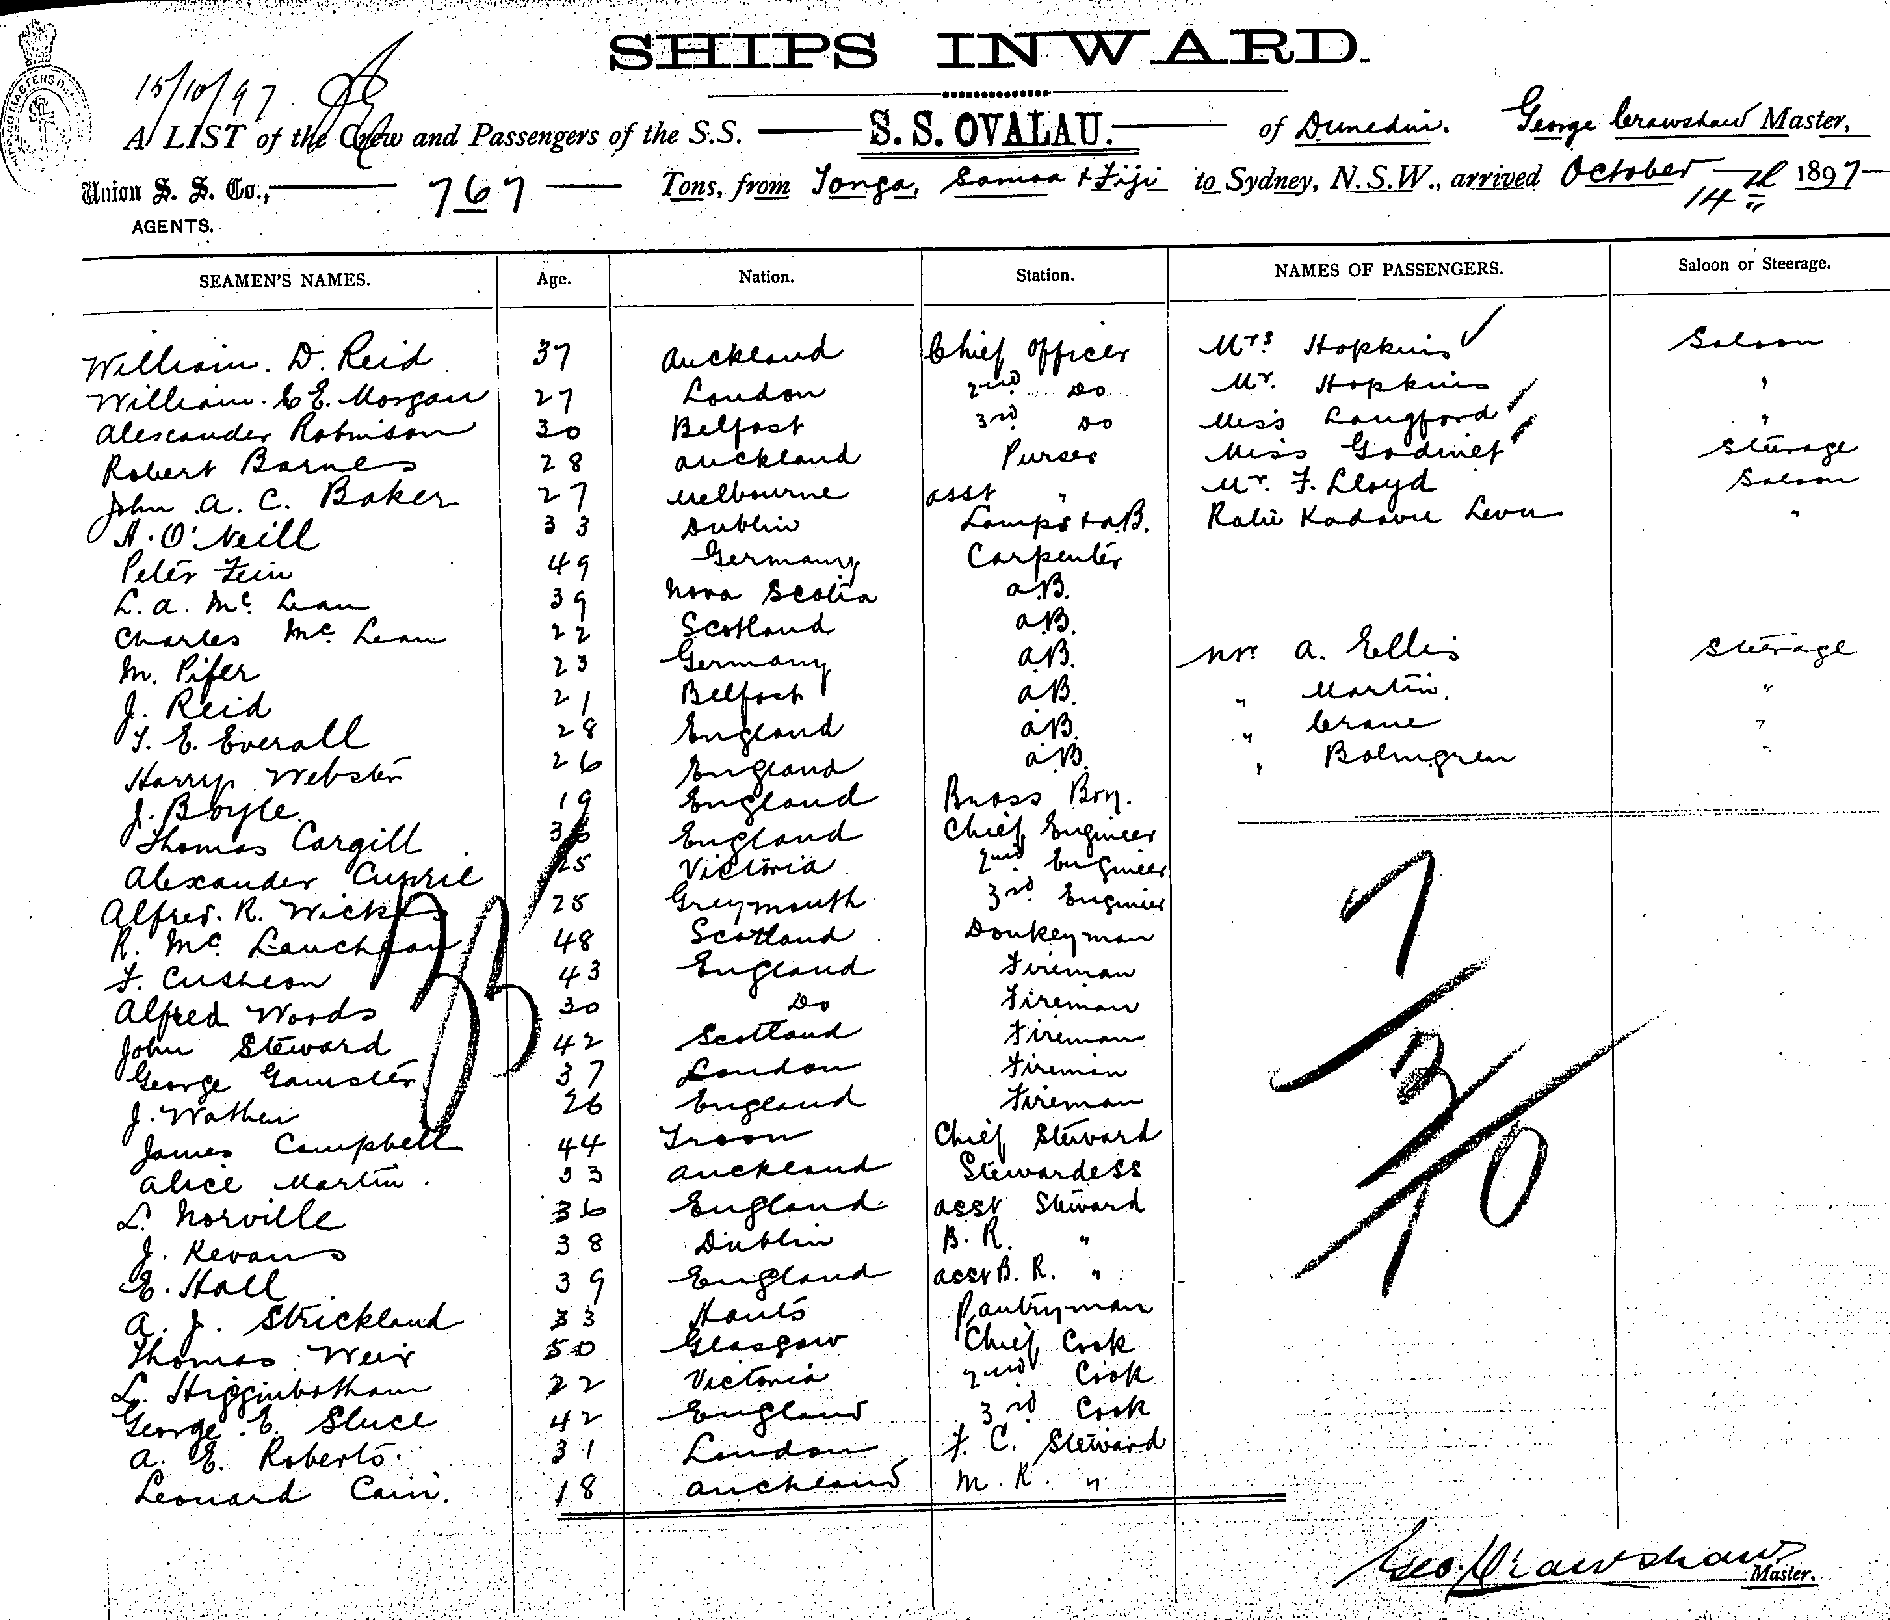 SHIPS INWARD.
15/10/97
A LIST of the Crew and Passengers of the S.S. S. S. OVALAU. of Dunedin. George Crawshaw Master,
Union S. S. Co., 767 Tons, from Tonga, Samoa & Fiji to Sydney, N.S.W., arrived October 14th 1897
AGENTS.
SEAMEN'S NAMES. Age. Nation. Station. NAMES OF PASSENGERS. Saloon or Steerage.
William. D. Reid 37 Auckland Chief Officer Mrs Hopkins Saloon
William. C E. Morgan 27 London 2nd Do Mr. Hopkins "
Alexander Robinson 30 Belfast 3rd Do Miss Langford "
Robert Barnes 28 Auckland Purser Miss Godinet Steerage
John A. C. Baker 27 Melbourne Asst " Mr. F. Lloyd Saloon
A. O'Neill 33 Dublin Lamps & AB. Ratu Kadavu Levu "
Peter Fein 49 Germany Carpenter
L. A. Mc Lean 39 Nova Scotia AB.
Charles Mc Lean 22 Scotland AB.
M. Pifer 23 Germany AB. Mr A. Ellis Steerage
J. Reid 21 Belfast AB. " Martin. "
T. E. Everall 28 England AB. " Crane "
Harry Webster 26 England AB. " Bolmgren "
J. Boyle. 19 England Brass Boy.
Thomas Cargill 36 England Chief Engineer
Alexander 25 Victoria 2nd Engineer
Alfred. R. Wicks 25 Greymouth 3rd Engineer
R. Mc Lauchlan 48 Scotland Donkeyman
F. Cusheon 43 England Fireman
Alfred Woods 30 Do Fireman
John Steward 42 Scotland Fireman
George 37 London Fireman
J. Wathen 26 England Fireman
James Campbell 44 Troon Chief Steward
Alice Martin. 33 Auckland Stewardess
L. Norville 36 England Asst Steward
J. Kevans 38 Dublin B. R. "
E. Hall 39 England Asst B. R. "
A. J. Strickland 33 Hants Pantryman
Thomas Weir 50 Glasgow Chief Cook
L. Higginbotham 22 Victoria 2nd Cook
George. E. Sluce 42 England 3rd Cook
A. E. Roberts. 31 London F. C. Steward
Leonard Cain. 18 Auckland M. R. "
33
7
3
10
Geo. Crawshaw
Master.